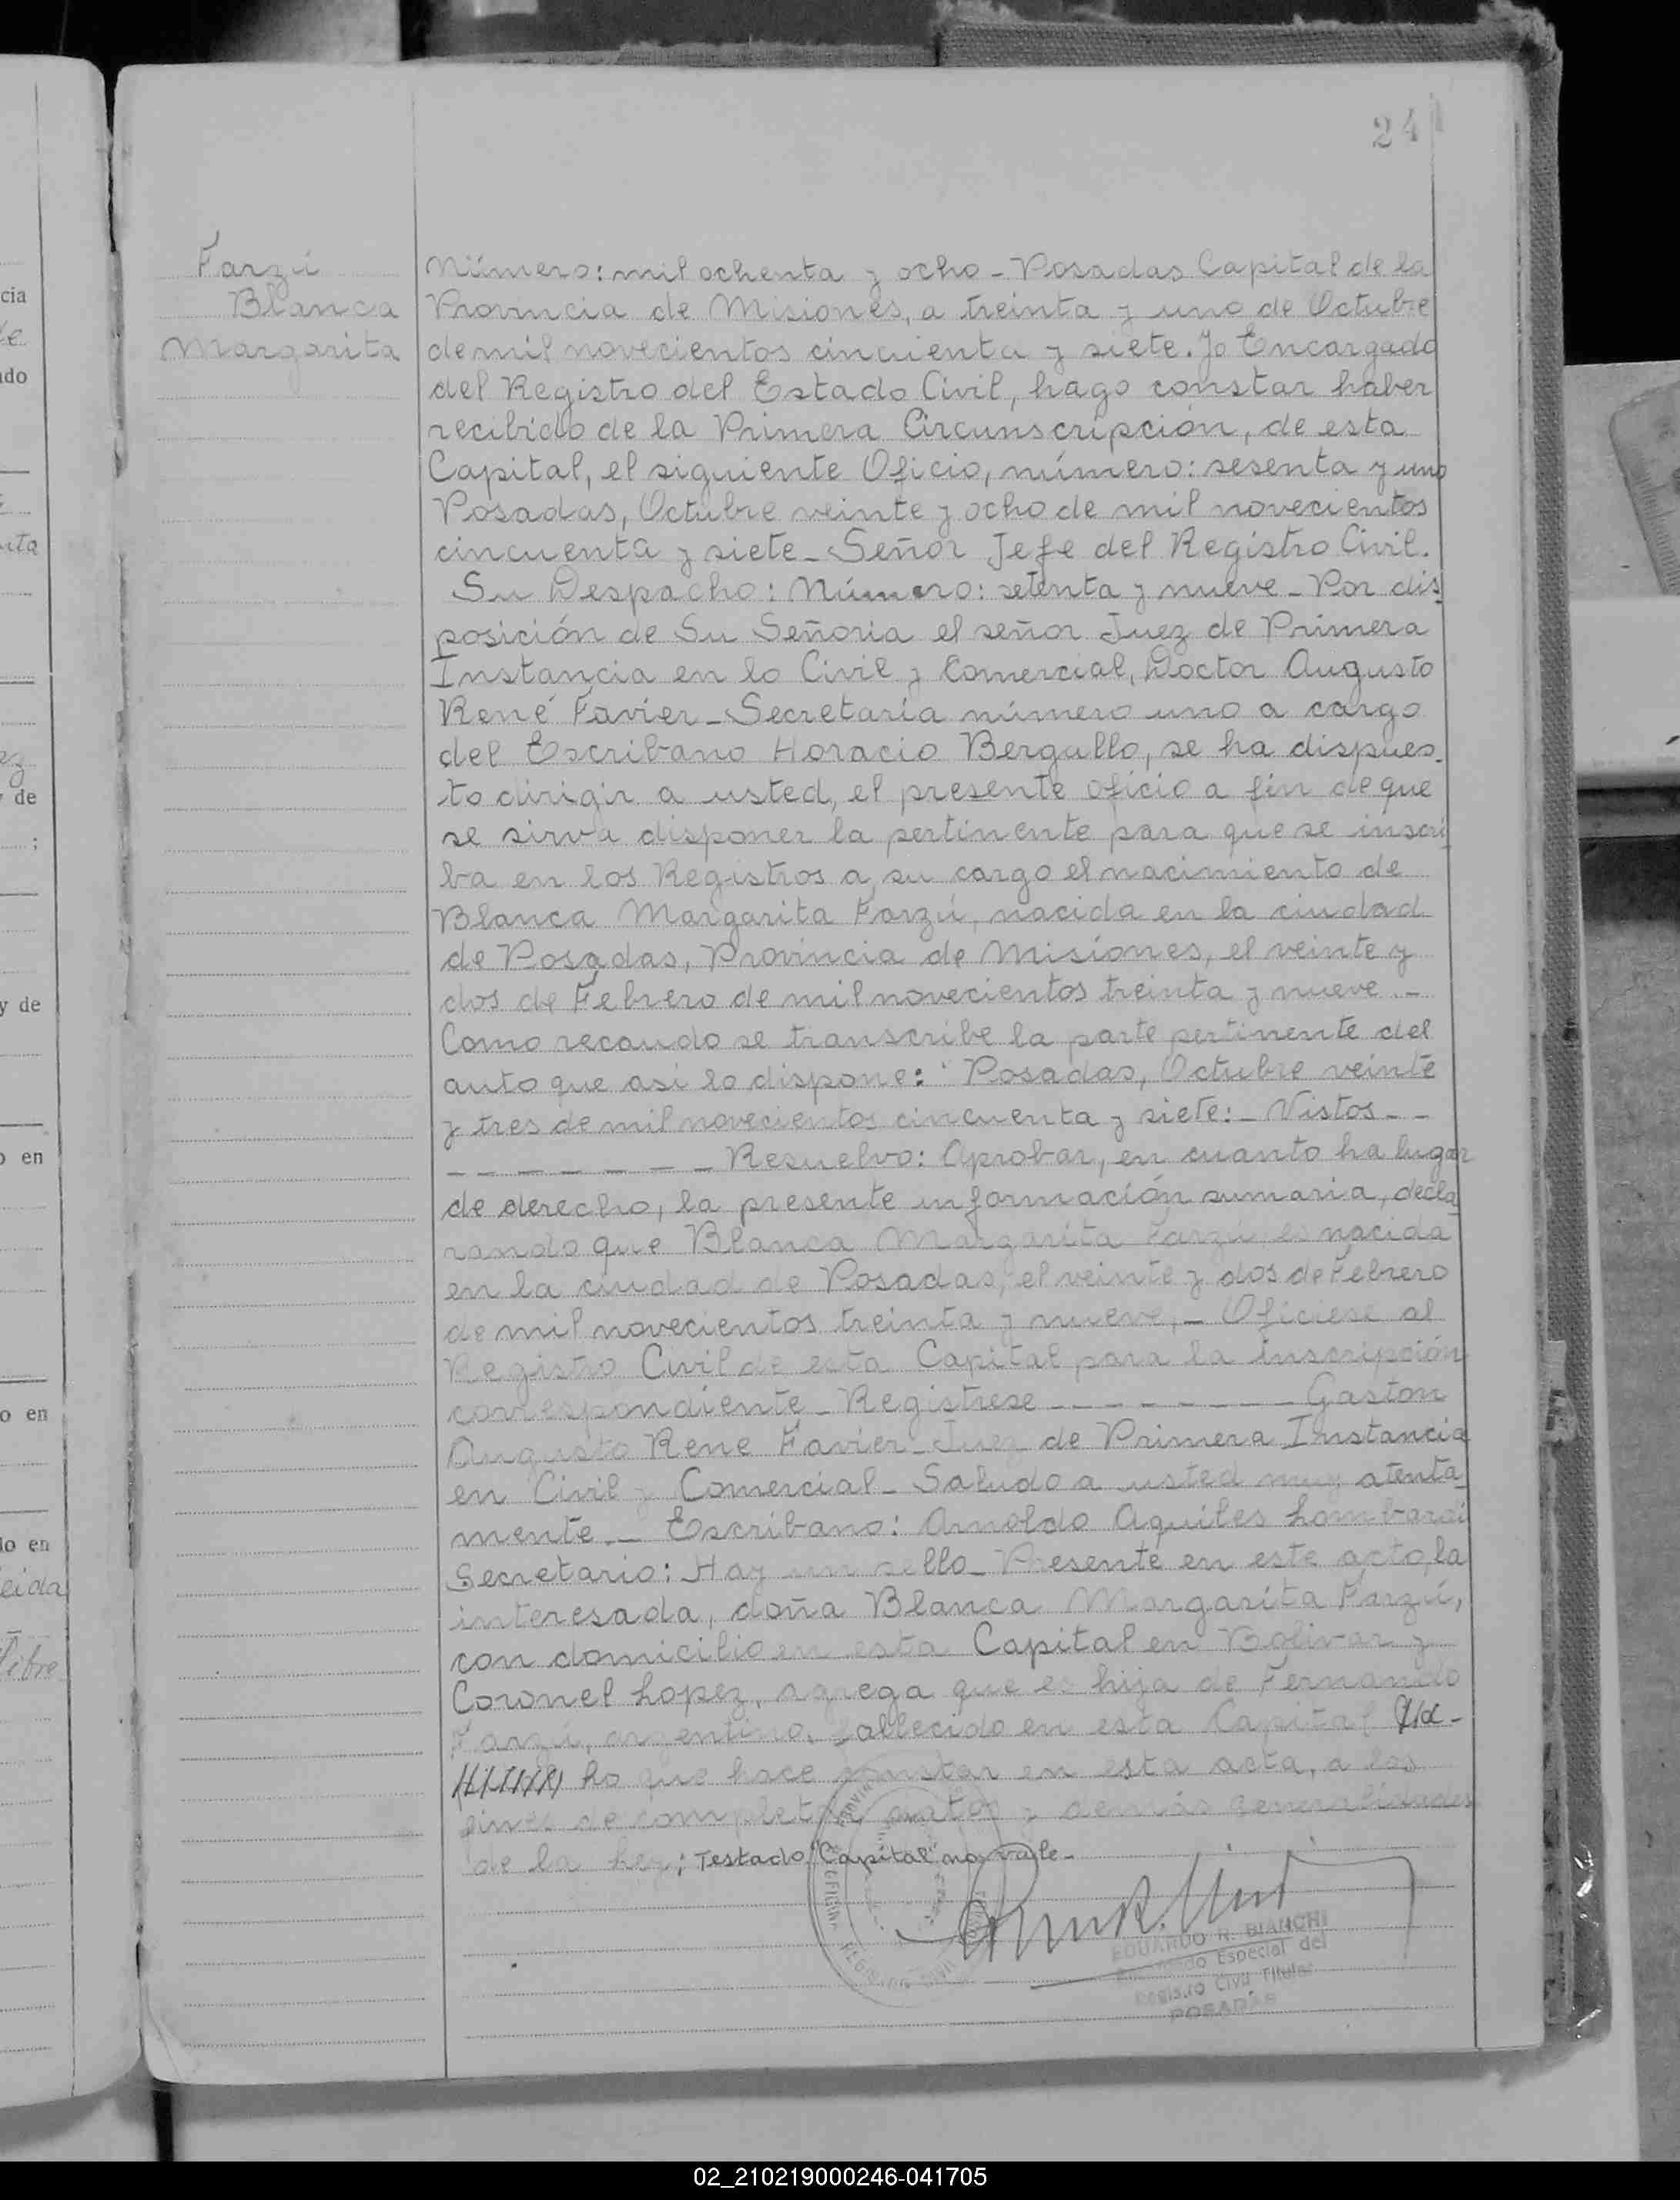 24
Farzú
Blanca
Margarita
Número: mil ochenta y ocho - Posadas Capital de la
Provincia de Misiones, a treinta y uno de Octubre
de mil novecientos cincuenta y siete. Yo Encargado
del Registro del Estado Civil, hago constar haber
recibido de la Primera Circunscripción, de esta
Capital, el siguiente Oficio, número: sesenta y uno
Posadas, Octubre veinte y ocho de mil novecientos
cincuenta y siete - Señor Jefe del Registro Civil.
Su Despacho: Número: setenta y nueve - Por dis
posición de Su Señoria el señor Juez de Primera
Instancia en lo Civil y Comercial, Doctor Augusto
René Favier - Secretaría número uno a cargo
del Escribano Horacio Bergallo, se ha dispues_
to dirigir a usted, el presente oficio a fin de que
se sirva disponer la pertinente para que se inscri
ba en los Registros a su cargo el nacimiento de
Blanca Margarita Farzú, nacida en la ciudad
de Posadas, Provincia de Misiones, el veinte y
dos de Febrero de mil novecientos treinta y nueve. -
Como recaudo se transcribe la parte pertinente del
auto que asi lo dispone: "Posadas, Octubre veinte
y tres de mil novecientos cincuenta y siete: - Vistos - -
- - - - - - - Resuelvo: Aprobar, en cuanto ha lugar
de derecho, la presente información sumaria, decla
rando que Blanca Margarita Farzú es nacida
en la ciudad de Posadas, el veinte y dos de Febrero
de mil novecientos treinta y nueve, - Ofíciese al
Registro Civil de esta Capital para la inscripción
correspondiente - Registrese - - - - - - - - Gaston
Augusto Rene Favier - Juez de Primera Instancia
en Civil y Comercial - Saludo a usted muy atenta
mente - Escribano: Arnoldo Aquiles Lombardi
Secretario: Hay un sello - Presente en este acto, la
interesada, doña Blanca Margarita Farzú,
con domicilio en esta Capital en Bolivar y
Coronel Lopez, agrega que es hija de Fernando
Farzú, argentino, fallecido en esta Capital
Lo que hace constar en esta acta, a los
fines de completar datos y demás generalidades
de la ley; Testado "Capital" no vale -
EDUARDO R. BIANCHI
Especial del
Registro Civil Titular
POSADAS
02_210219000246-041705